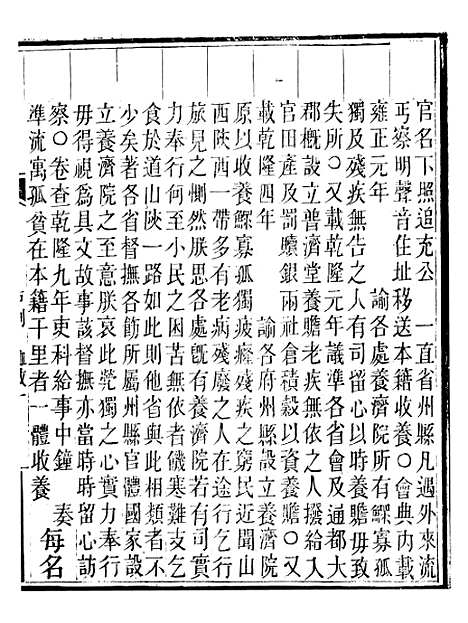 官名下照追充公　一直省州縣凡遇外來流
丐察明聲音住址移送本籍收養○會典內載
雍正元年　諭各處養濟院所有鰥寡孤
獨及殘疾無告之人有司留心以時養贍毋致
失所○又載乾隆元年議準各省會及通都大
郡概設立普濟堂養贍老疾無依之人撥給入
官田產及罰贖銀兩社倉積穀以資養贍○又
載乾隆四年　諭各府州縣設立養濟院
原以收養鰥寡孤獨疲癃殘疾之窮民近聞山
西陝西一帶多有老病殘廢之人在途行乞行
旅見之惻然朕思各處旣有養濟院若有司實
力奉行何至小民之困苦無依者饑寒難支乞
食於道山陝一路如此他省與此相類者不
少矣著各省督撫各飭所屬州縣官體國家設
立養濟院之至意朕哀此煢獨之心實力奉行
毋得視爲具文故事該督撫亦當時時留心訪
察○卷查乾隆九年吏科給事中鐘　奏
準流寓孤貧在本籍千里者一體收養　每名